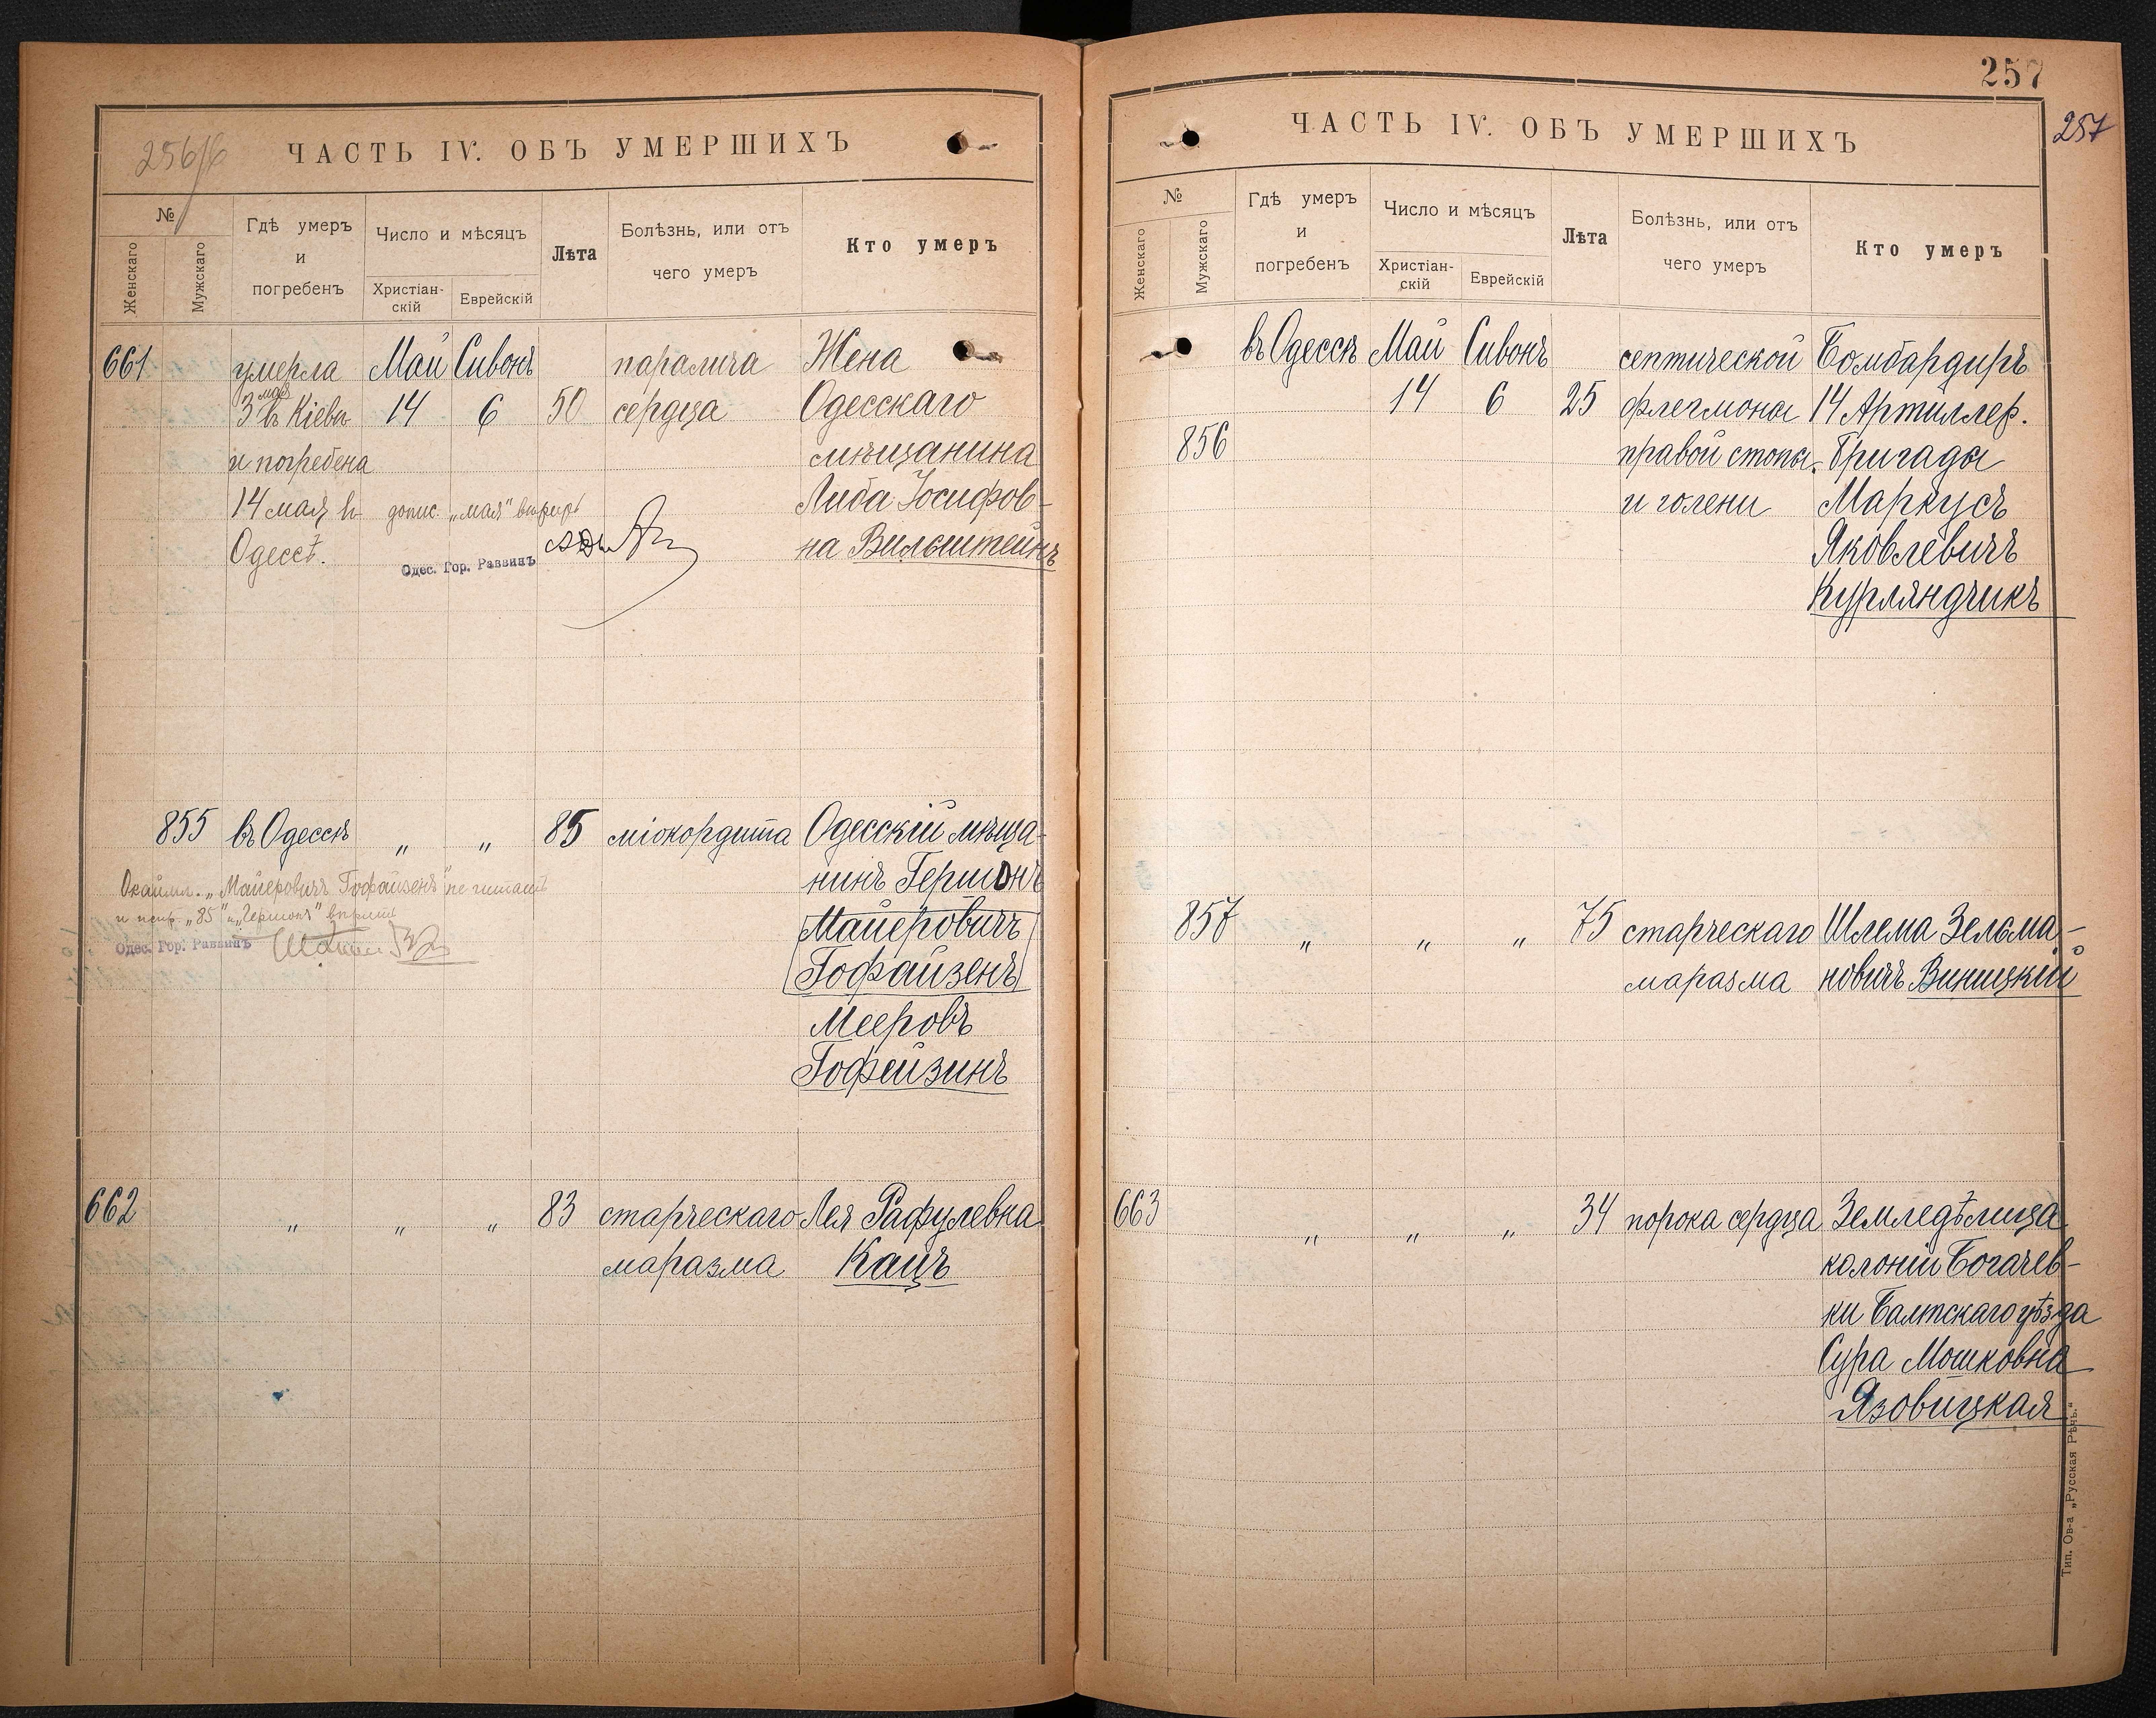 256/б
ЧАСТЬ IV. ОБЪ УМЕРШИХЪ
№
Женскаго
Мужскаго
Гдѣ умеръ
и
погребенъ
Число и мѣсяцъ
Христіан-
скій
Еврейскій
Лѣта
Болѣзнь, или отъ
чего умеръ
Кто умеръ
661
умерла
3 мая
въ Кіевѣ
и погребена
14 мая въ
Одессѣ.
Май
14
Сивонъ
6
50
паралича
сердца
Жена
Одесскаго
мѣщанина
Либа Іосифов-
на Вильштейнъ
допис. „мая“ вѣрно
Одес. Гор. Раввинъ
855
въ Одессѣ
„
„
85
міокордита
Одесскій мѣща-
нинъ Гершонъ
Майеровичъ
Гофайзенъ
Мееровъ
Гофейзинъ
Окаймл. „Майеровичъ Гофайзенъ“ не читать
и испр. „85“ и „Гершонъ“ вѣрно
Одес. Гор. Раввинъ
662
„
„
„
83
старческаго
маразма
Лея Рафулевна
Кацъ
257
257
ЧАСТЬ IV. ОБЪ УМЕРШИХЪ
№
Женскаго
Мужскаго
Гдѣ умеръ
и
погребенъ
Число и мѣсяцъ
Христіан-
скій
Еврейскій
Лѣта
Болѣзнь, или отъ
чего умеръ
Кто умеръ
856
въ Одессѣ
Май
14
Сивонъ
6
25
септической
флегмоны
правой стопы
и голени
Бомбардиръ
14 Артиллер.
Бригады
Маркусъ
Яковлевичъ
Курляндчикъ
857
„
„
„
75
старческаго
маразма
Шлема Зельма-
новичъ Виницкій
663
„
„
„
34
порока сердца
Земледѣлица
колоніи Богачев-
ки Балтскаго уѣзда
Сура Мошковна
Язовицкая
Тип. Ов-а „Русская Рѣчь.“